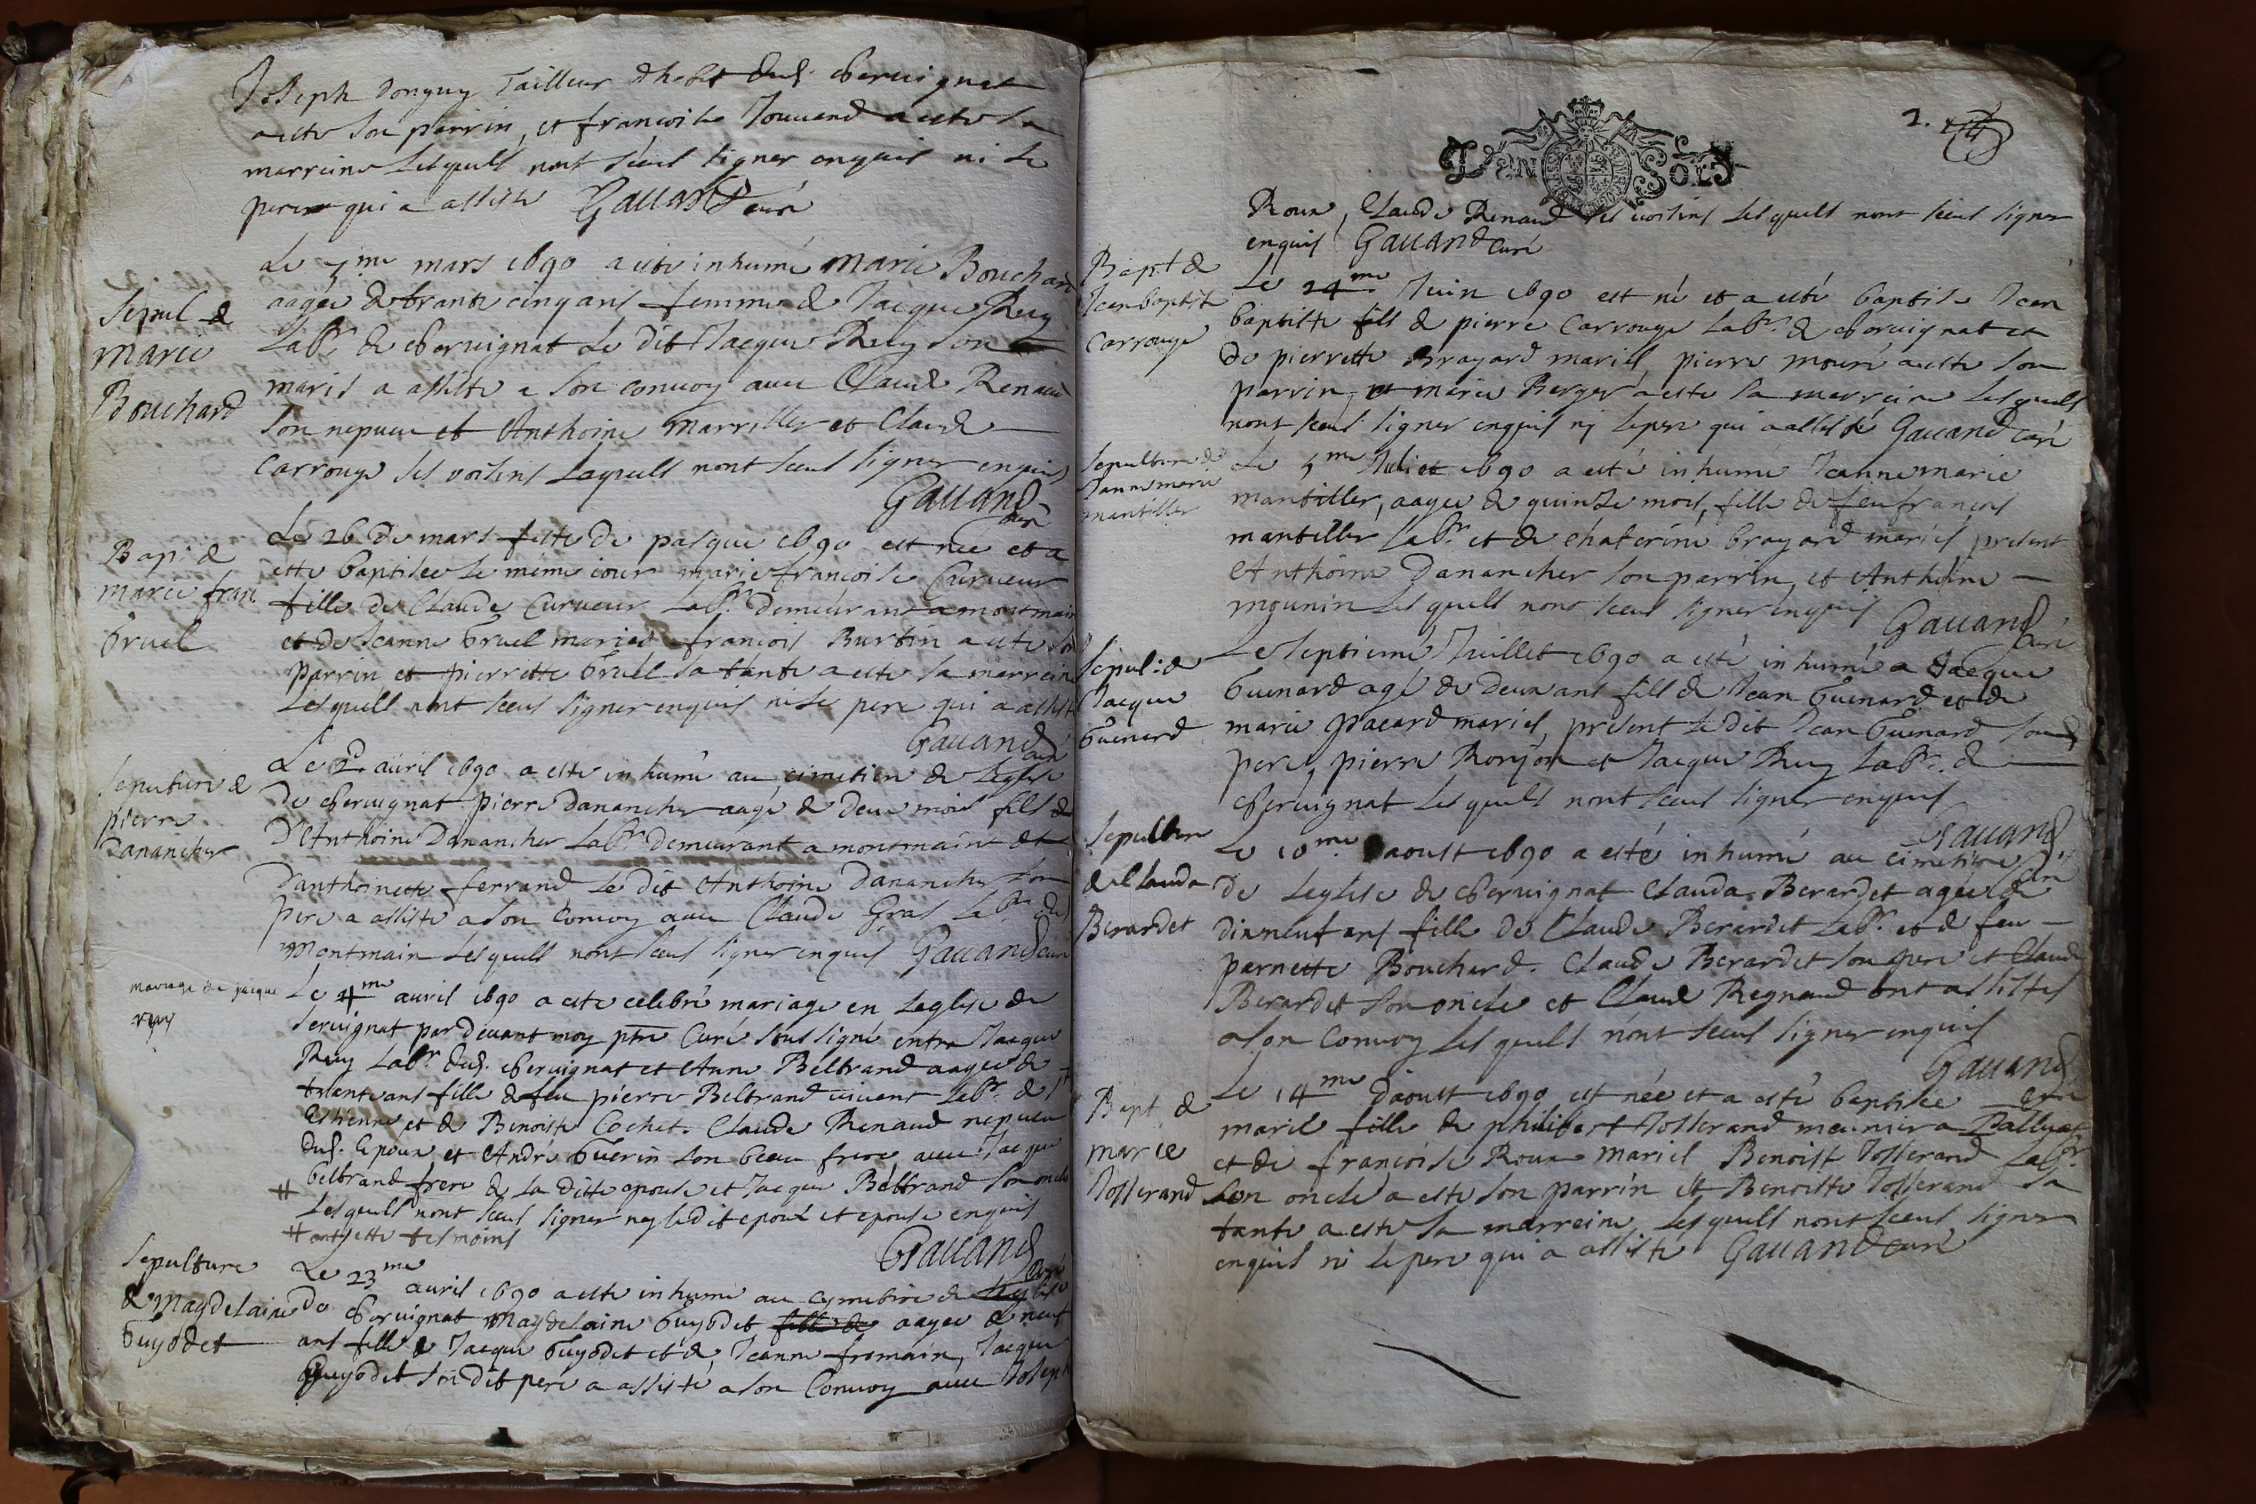 Joseph donguy Tailleur dhabit dud. chervignat
a esté son parrin, et francoise Jouvend a esté sa
marreine Lesquels nont sceus signer enquis ni le
pere qui a assisté Gauand curé
Le 7me mars 1690 a esté inhumé marie Bouchard
aagée de trante cinq ans femme de Jacque Ruy
Labr. de chervignat Le dit Jacque Ruy son
maris a assisté a son convoy avec Claude Renaud
son nepveu et Anthoine marriller et Claude
carrouge ses voisins Lesquels nont sceus signer enquis
Gauand
curé
Sepul de
marie
Bouchard
Le 26 De mars feste de pasque 1690 est née et a
esté baptisée le méme jour marie francoise Curveur
fille de Claude Curveur Labr. Demeurant a montmain
et de Jeanne bruel mariés francois Burtin a esté son
parrin et pierrette bruel sa tante a esté sa marreine
Lesquels nont sceus signer enquis ni le pere qui a assisté
Gauand
curé
Bap: de
marie fran
bruel
Le 2d avril 1690 a esté inhumé au cimetiere de Leglise
De chervignat pierre Danancher aagé de deux mois fils de
D'Anthoine Danancher Labr Demeurant a montmaint et
D'anthoinette ferrand Le dit Anthoine Danancher son
pere a assisté a son convoy avec Claude Gras Labr de
Montmain Lesquels nont sceus signer enquis Gauand curé
sepulture de
pierre
Danancher
Le 4me avril 1690 a esté celebré mariage en Leglise de
servignat par devant moy ptre Curé sous signé entre Jacque
Ruy Labr dud. chervignat et Anne Beltrand aagée de
trante ans fille de feu pierre Beltrand vivent Labr. de St
Estienne et de Benoiste Cochet. Claude Renaud nepveu
dud. Epoux et André Guerin son beau frere avec Jacque
beltrand frere de La ditte epouse et Jacque Beltrand son oncle
# Lesquels nont sceus signer ny le dit epoux et epouse enquis
# ont esté tesmoins
Gauand
curé
mariage de jacque
ruy
Le 23me avril 1690 a esté inhumé au cymetiere de Leglise
De chervignat magdelaine Guyodet fille de aagée de neuf
ans fille de Jacque Guyodet et de Jeanne fromain, Jacque
Guyodet son dit pere a assisté a son Convoy avec Joseph
Sepulture
de Magdelaine
Guyodet
2.
DEUX SOLS
Roux, Claude Renaud ses voisins Lesquels nont sceus signer
enquis Gauand Curé
Le 24me Juin 1690 est né et a esté baptisé Jean
baptiste fils de pierre Carrouge Labr. de chervignat et
De pierrette Brayard mariés, pierre mouré a esté son
parrin, et marie Berger a esté sa marreine Lesquels
nont sceus signer enquis ny le pere qui a assisté Gauand curé
Bapt. de
Jean baptiste
carrouge
Le 5me Juliet 1690 a esté inhumé Jeanne marie
mantiller, aagée de quinze mois, fille de feu francois
mantiller Labr. et de Chaterine brayard mariés present
Anthoine Danancher son parrin, et Anthoine
mounin Lesquels nont sceus signer enquis Gauand
curé
sepulture de
Janne marie
mantiller
Le septieme Juillet 1690 a esté inhumé a Jacque
Guenard agé de deux ans fils de Jean Guenard et de
marie pacard mariés, present le dit Jean Guenard son
pere, pierre Ronjon et Jacque Ruy Labr. de
chervignat Lesquels nont sceus signer enquis
Gauand
curé
Sepul: de
Jacque
Guenard
Le 10me aoust 1690 a esté inhumé au cimetiere
De Leglise de chervignat Clauda Berardet agée de
dixneuf ans fille de Claude Berardet Labr. et de feu
pernette Bouchard. Claude Berardet son pere et Claude
Berardet son oncle et Claude Regnaud ont assistés
a son convoy Lesquels nont sceus signer enquis
Gauand
curé
Sepulture
de Clauda
Berardet
Le 14me Daoust 1690 est née et a esté baptisée
marie fille de philibert Josserand meunier a
et de francoise Roux mariés Benoist Josserand Labr.
son oncle a esté son parrin et Benoiste Josserand sa
tante a esté sa marreine Lesquels nont sceus signer
enquis ni le pere qui a assisté Gauand curé
Bapt. de
marie
Josserand